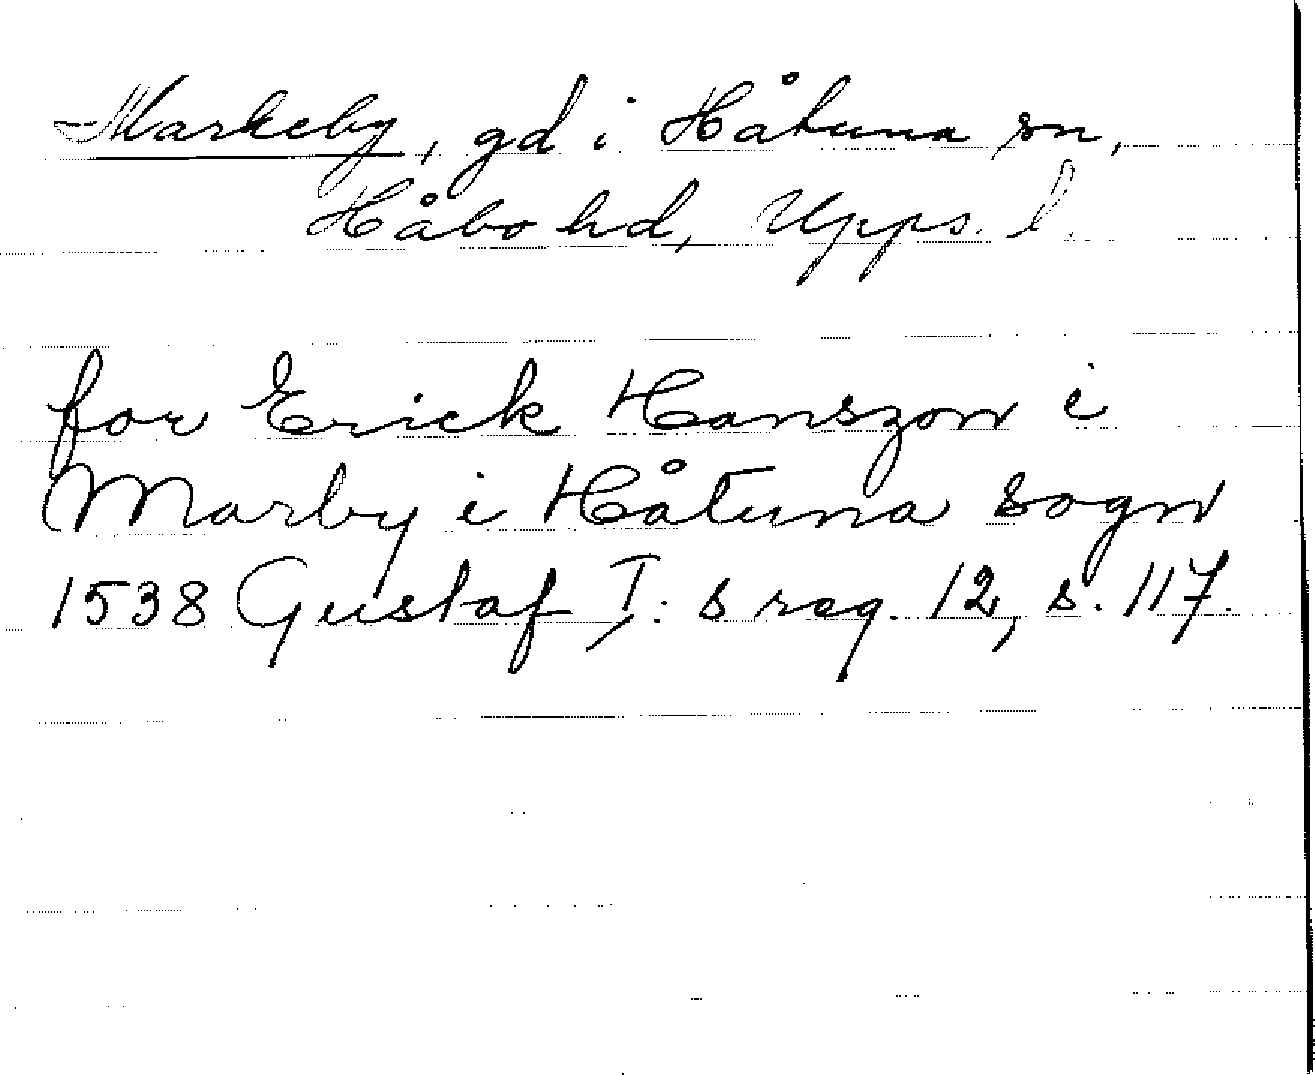 Markeby, gd i Håtuna sn,
Håbo hd, Upps. l.
for Erick Hanszon i
Marby i Håtuna sogn
1538 Gustaf I:s reg. 12, s. 117.